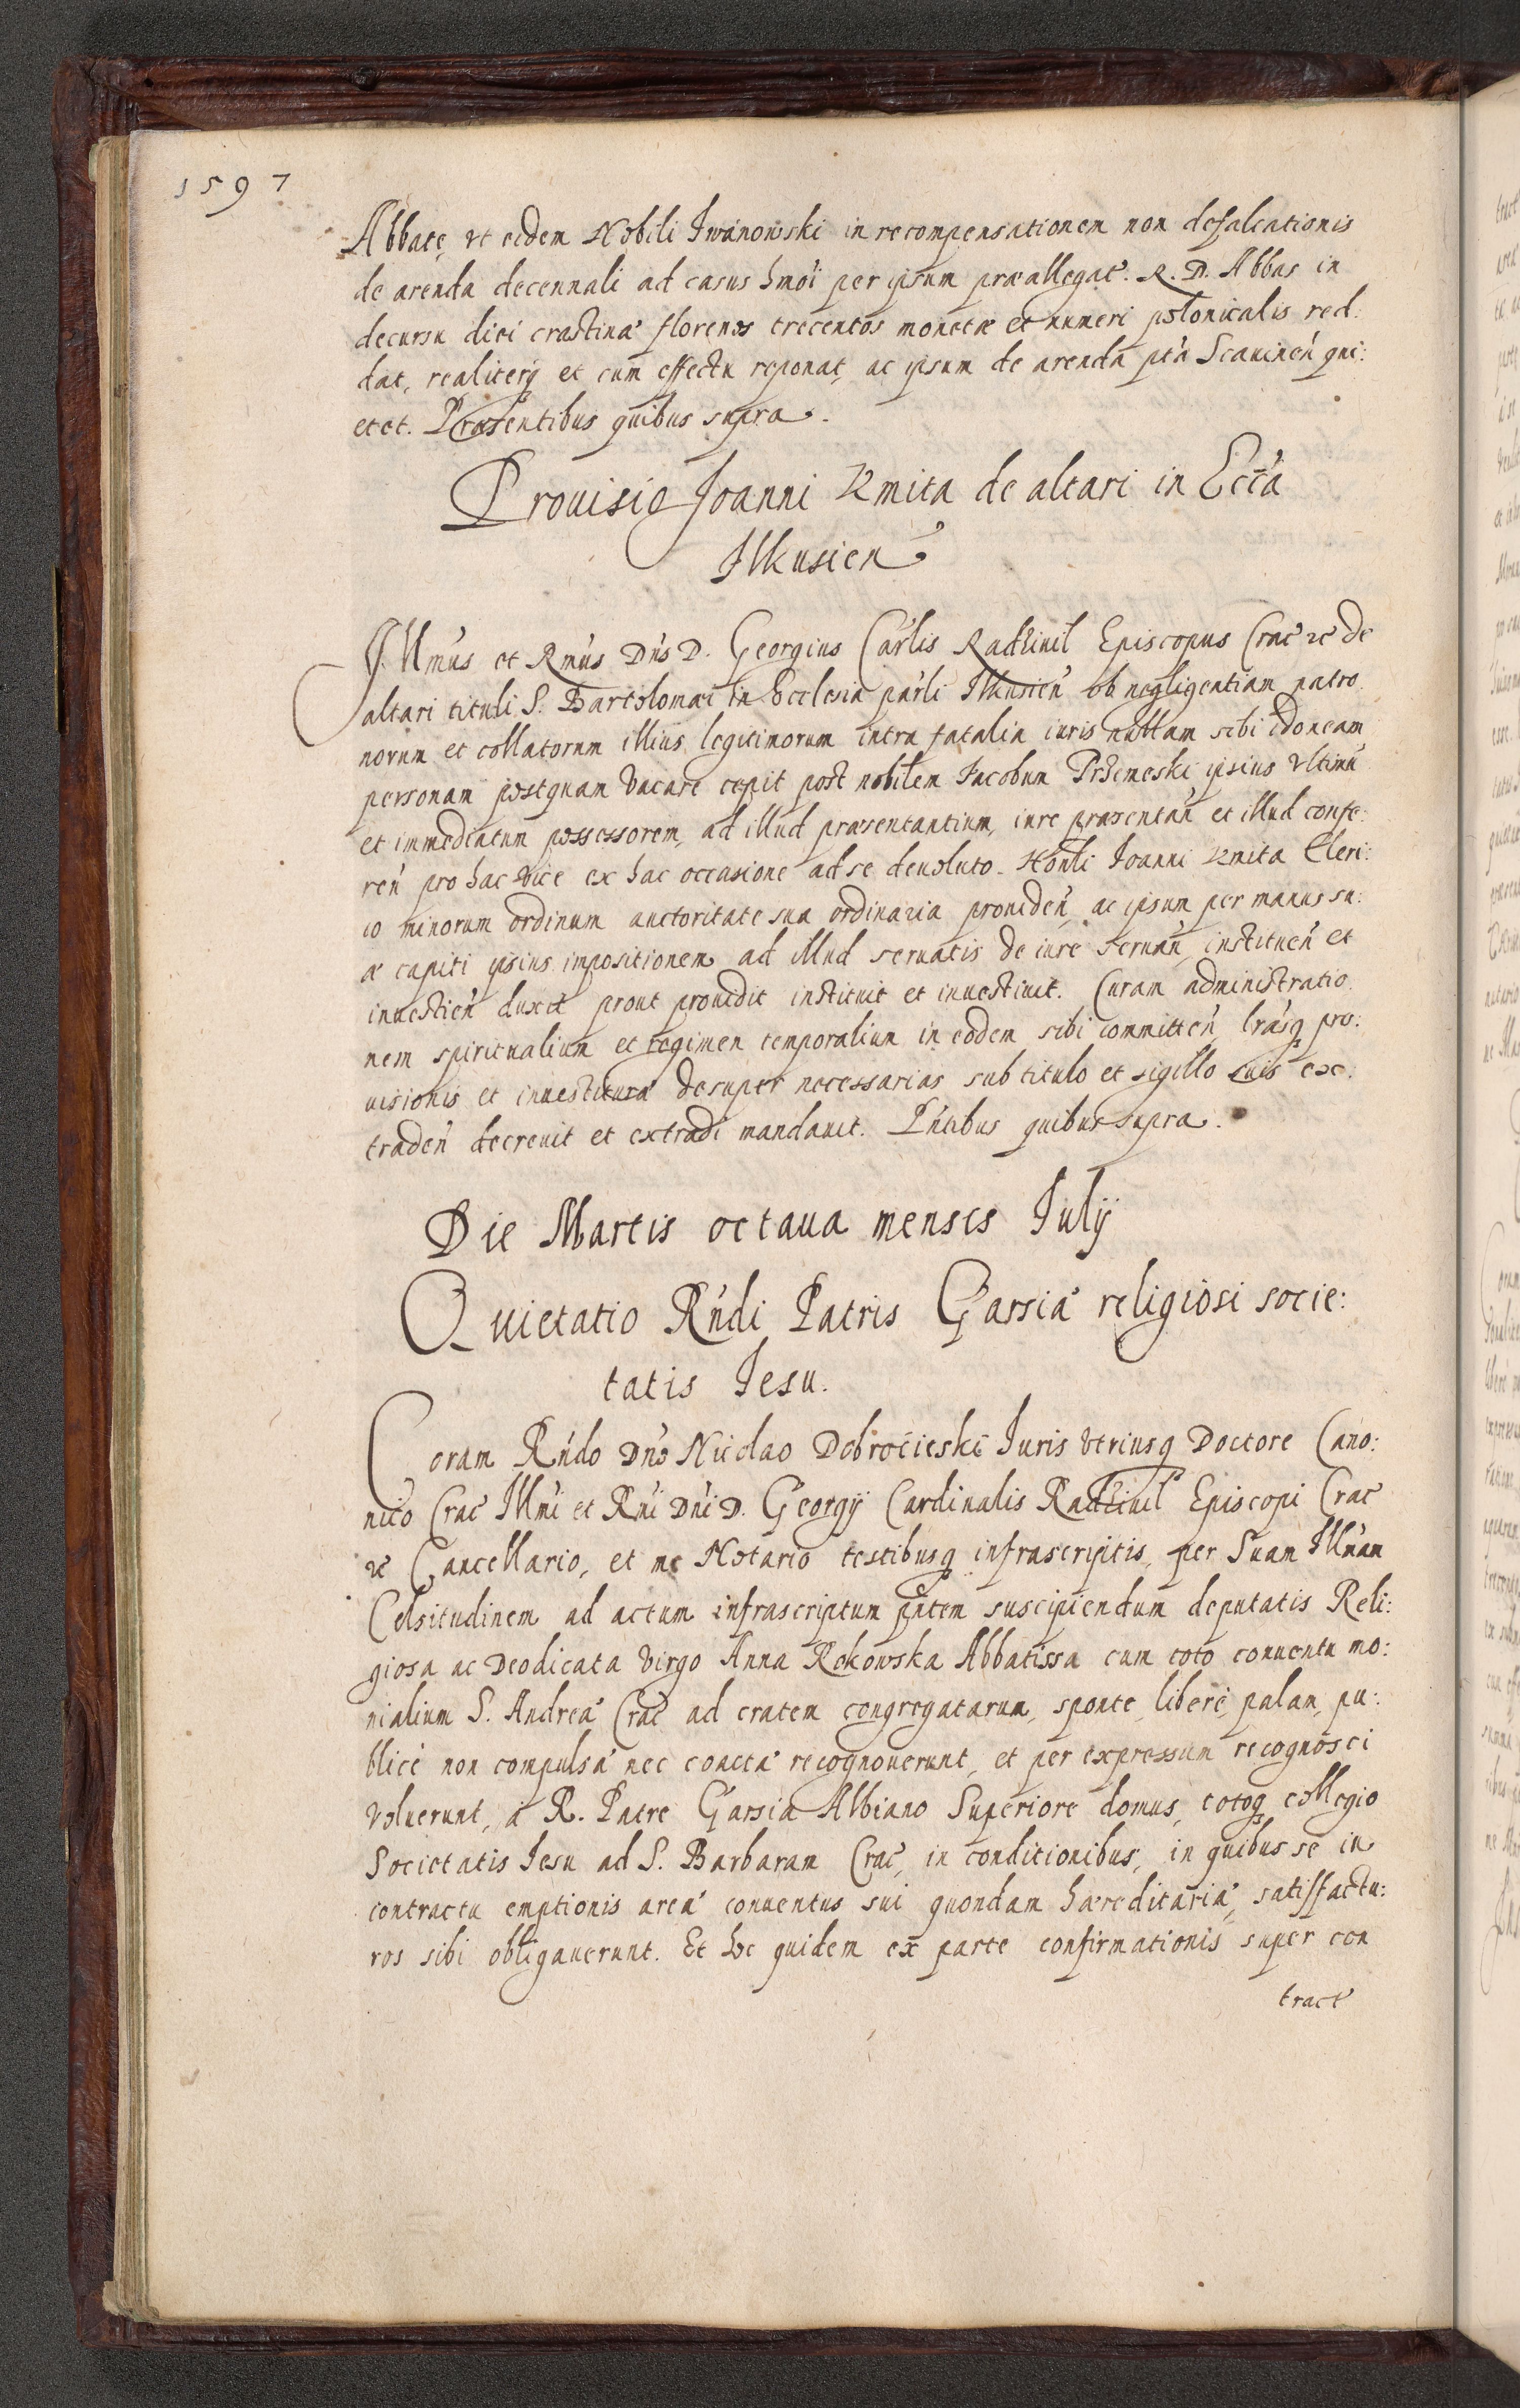 1597
Abbate, vt eidem Nobili Iwanowski in recompensationem non defalcationis
de arenda decennali ad casus hmoi per ipsum præallegat. R. D. Abbas in
decursu diei crastinæ florenos trecentos monetæ et numeri polonicalis red:
dat, realiterq et cum effectu reponat, ac ipsum de arenda ptа Scauinen qui:
etet. Præsentibus quibus supra.
Prouisio Joanni Kmita de altari in Eccła
Ilkusien
Illmus et Rmus Dns D. Georgius Carlis Radziuil Episcopus Crac &c de
altari tituli S. Bartolomæi in Ecclesia parli Ilkusien ob negligentiam patro
norum et collatorum illius legitimorum intra fatalia iuris nullam sibi idoneam
personam postquam vacare cepit post nobilem Iacobum Przemeski ipsius vltimu
et immediatum possessorem, ad illud præsentantium, iure præsentan et illud confe:
ren pro hac vice ex hac occasione ad se deuoluto. Honli Ioanni Kmita Cleri:
co minorum ordinum auctoritate sua ordinaria prouiden, ac ipsum per manus su:
æ capiti ipsius impositionem ad illud seruatis de iure seruan, instituen et
inuestien duxit prout prouidit instituit et inuestiuit. Curam administratio
nem spiritualium et regimen temporalium in eodem sibi committen, lrasq pro:
uisionis et inuestituræ desuper necessarias sub titulo et sigillo suis ex
traden decreuit et extradi mandauit. Pntibus quibus supra.
Die Martis octaua mensis Iulij
Quietatio Rndi Patris Garsiæ religiosi socie:
tatis Iesu.
Coram Rndo Dno Nicolao Dobrocieski Iuris vtriusq Doctore Cano:
nico Crac Illmi et Rmi Dni D. Georgij Cardinalis Radziuil Episcopi Crac
&c Cancellario, et me Notario testibusq infrascriptis, per Suam Illmam
Celsitudinem ad actum infrascriptum pntem suscipiendum deputatis Reli:
giosa ac Deodicata virgo Anna Rekowska Abbatissa cum toto conuentu mo:
nialium S. Andreæ Crac ad cratem congregatarum, sponte, liberè, palam, pu:
blicè non compulsæ nec coactæ recognouerunt, et per expressum recognosci
voluerunt, à R. Patre Garsia Albiano Superiore domus, totoq collegio
Societatis Iesu ad S. Barbaram Crac, in conditionibus, in quibus se in
contractu emptionis areæ conuentus sui quondam hæreditariæ, satisfactu:
ros sibi obligauerunt. Et hoc quidem ex parte confirmationis super con
tract